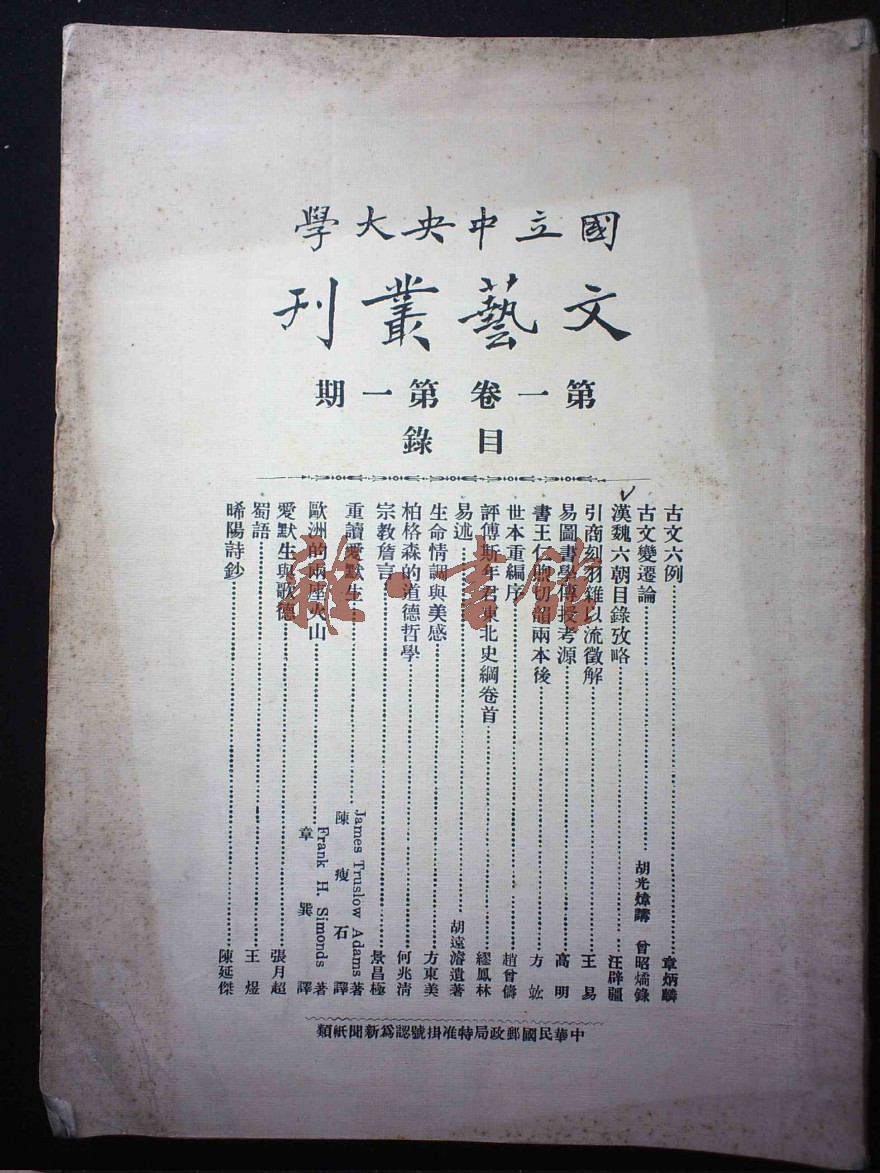 國立中央大學
文藝叢刊
第一卷第一期
目錄
古文六例 章炳麟
古文變遷論 胡光煒講 曾昭燏錄
漢魏六朝目錄攷略 汪辟疆
引商刻羽雜以流徵解 王易
易圖書學傳授考源 高明
書王仁煦切韻兩本後 方竑
世本重編序 趙曾儔
評傅斯年君東北史綱卷首 繆鳳林
易述 胡遠濬遺著
生命情調與美感 方東美
柏格森的道德哲學 何兆清
宗教詹言 景昌極
重讀愛默生 James Truslow Adams著 陳瘦石譯
歐洲的兩座火山 Frank H. Simonds著 章巽譯
愛默生與歌德 張月超
蜀語 王煜
晞陽詩鈔 陳延傑
中華民國郵政局特准掛號認為新聞紙類
雜·書館